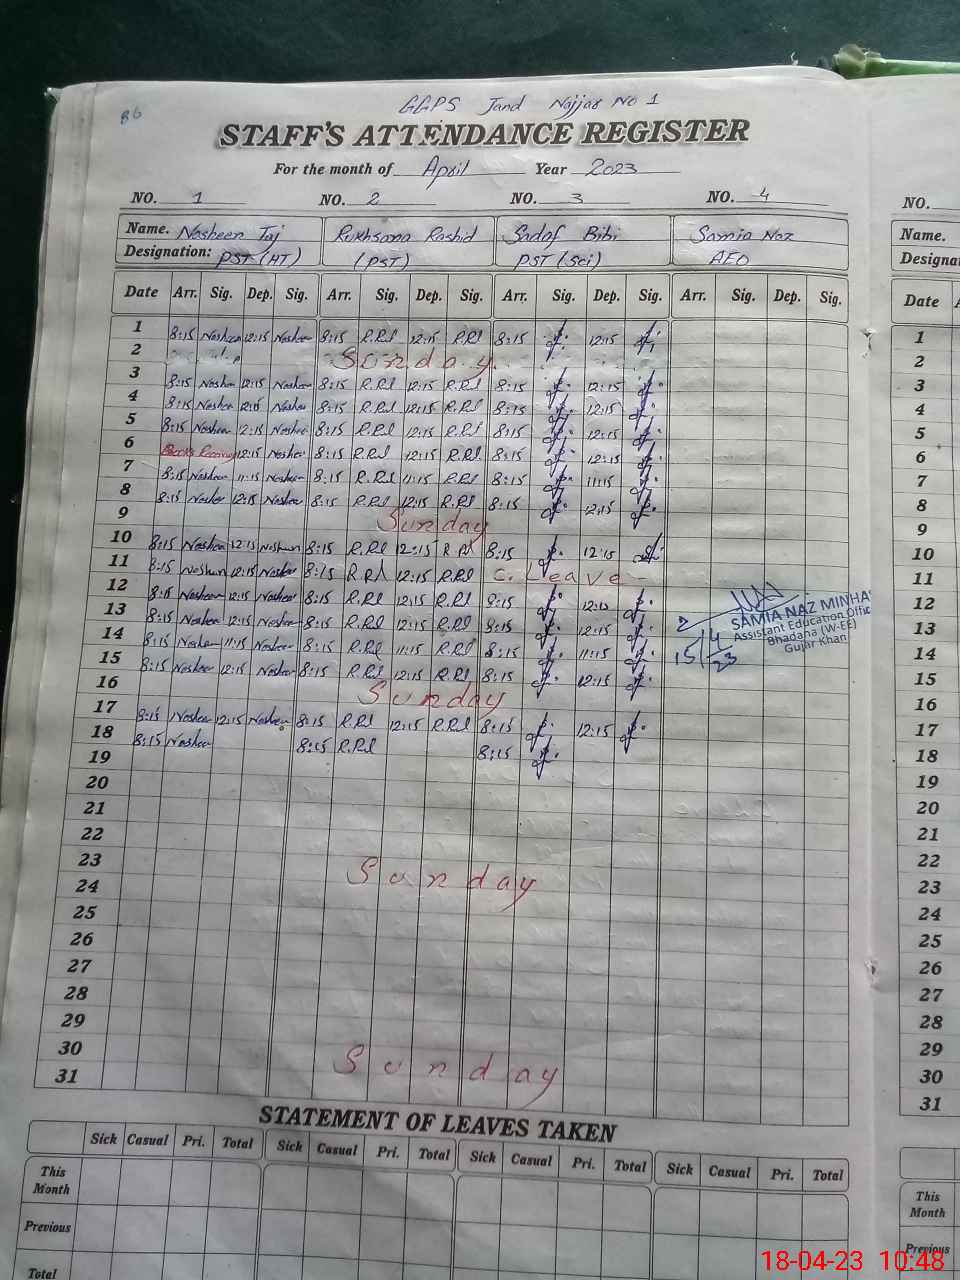 86
GGPS Jand Najjar No 1
STAFF'S ATTENDANCE REGISTER
For the month of April Year 2023
NO. 1 NO. 2 NO. 3 NO. 4 NO.
Name. Nosheen Taj Rukhsana Rashid Sadaf Bibi Samia Naz Name.
Designation: PST (HT) (PST) PST (Sci) AEO
Date Arr. Sig. Dep. Sig. Arr. Sig. Dep. Sig. Arr. Sig. Dep. Sig. Arr. Sig. Dep. Sig. Date
1 8:15 Nosheen 12:15 Nosheen 8:15 R.Rd 12:15 R.Rd 8:15 12:15 1
2 Sunday 2
3 8:15 Nosheen 12:15 Nosheen 8:15 R.Rd 12:15 R.Rd 8:15 12:15 3
4 8:15 Nosheen 12:15 Nosheen 8:15 R.Rd 12:15 R.Rd 8:15 12:15 4
5 8:15 Nosheen 12:15 Nosheen 8:15 R.Rd 12:15 R.Rd 8:15 12:15 5
6 12:15 Nosheen 8:15 R.Rd 12:15 R.Rd 8:15 12:15 6
7 8:15 Nosheen 11:15 Nosheen 8:15 R.Rd 11:15 R.Rd 8:15 11:15 7
8 8:15 Nosheen 12:15 Nosheen 8:15 R.Rd 12:15 R.Rd 8:15 12:15 8
9 Sunday 9
10 8:15 Nosheen 12:15 Nosheen 8:15 R.Rd 12:15 R.Rd 8:15 12:15 10
11 8:15 Nosheen 12:15 Nosheen 8:15 R.Rd 12:15 R.Rd C. Leave 11
12 8:15 Nosheen 12:15 Nosheen 8:15 R.Rd 12:15 R.Rd 8:15 12:15 12
13 8:15 Nosheen 12:15 Nosheen 8:15 R.Rd 12:15 R.Rd 8:15 12:15 13
14 8:15 Nosheen 11:15 Nosheen 8:15 R.Rd 11:15 R.Rd 8:15 11:15 14
15 8:15 Nosheen 12:15 Nosheen 8:15 R.Rd 12:15 R.Rd 8:15 12:15 15
SAMIA NAZ MINHA
Assistant Education Offic
Bhadana (W-EE)
Gujar Khan
15/4/23
16 Sunday 16
17 8:15 Nosheen 12:15 Nosheen 8:15 R.Rd 12:15 R.Rd 8:15 12:15 17
18 8:15 Nosheen 8:15 R.Rd 8:15 18
19 19
20 20
21 21
22 22
23 Sunday 23
24 24
25 25
26 26
27 27
28 28
29 29
30 Sunday 30
31 31
STATEMENT OF LEAVES TAKEN
Sick Casual Pri. Total Sick Casual Pri. Total Sick Casual Pri. Total Sick Casual Pri. Total
This Month This Month
Previous Previous
Total
18-04-23 10:48